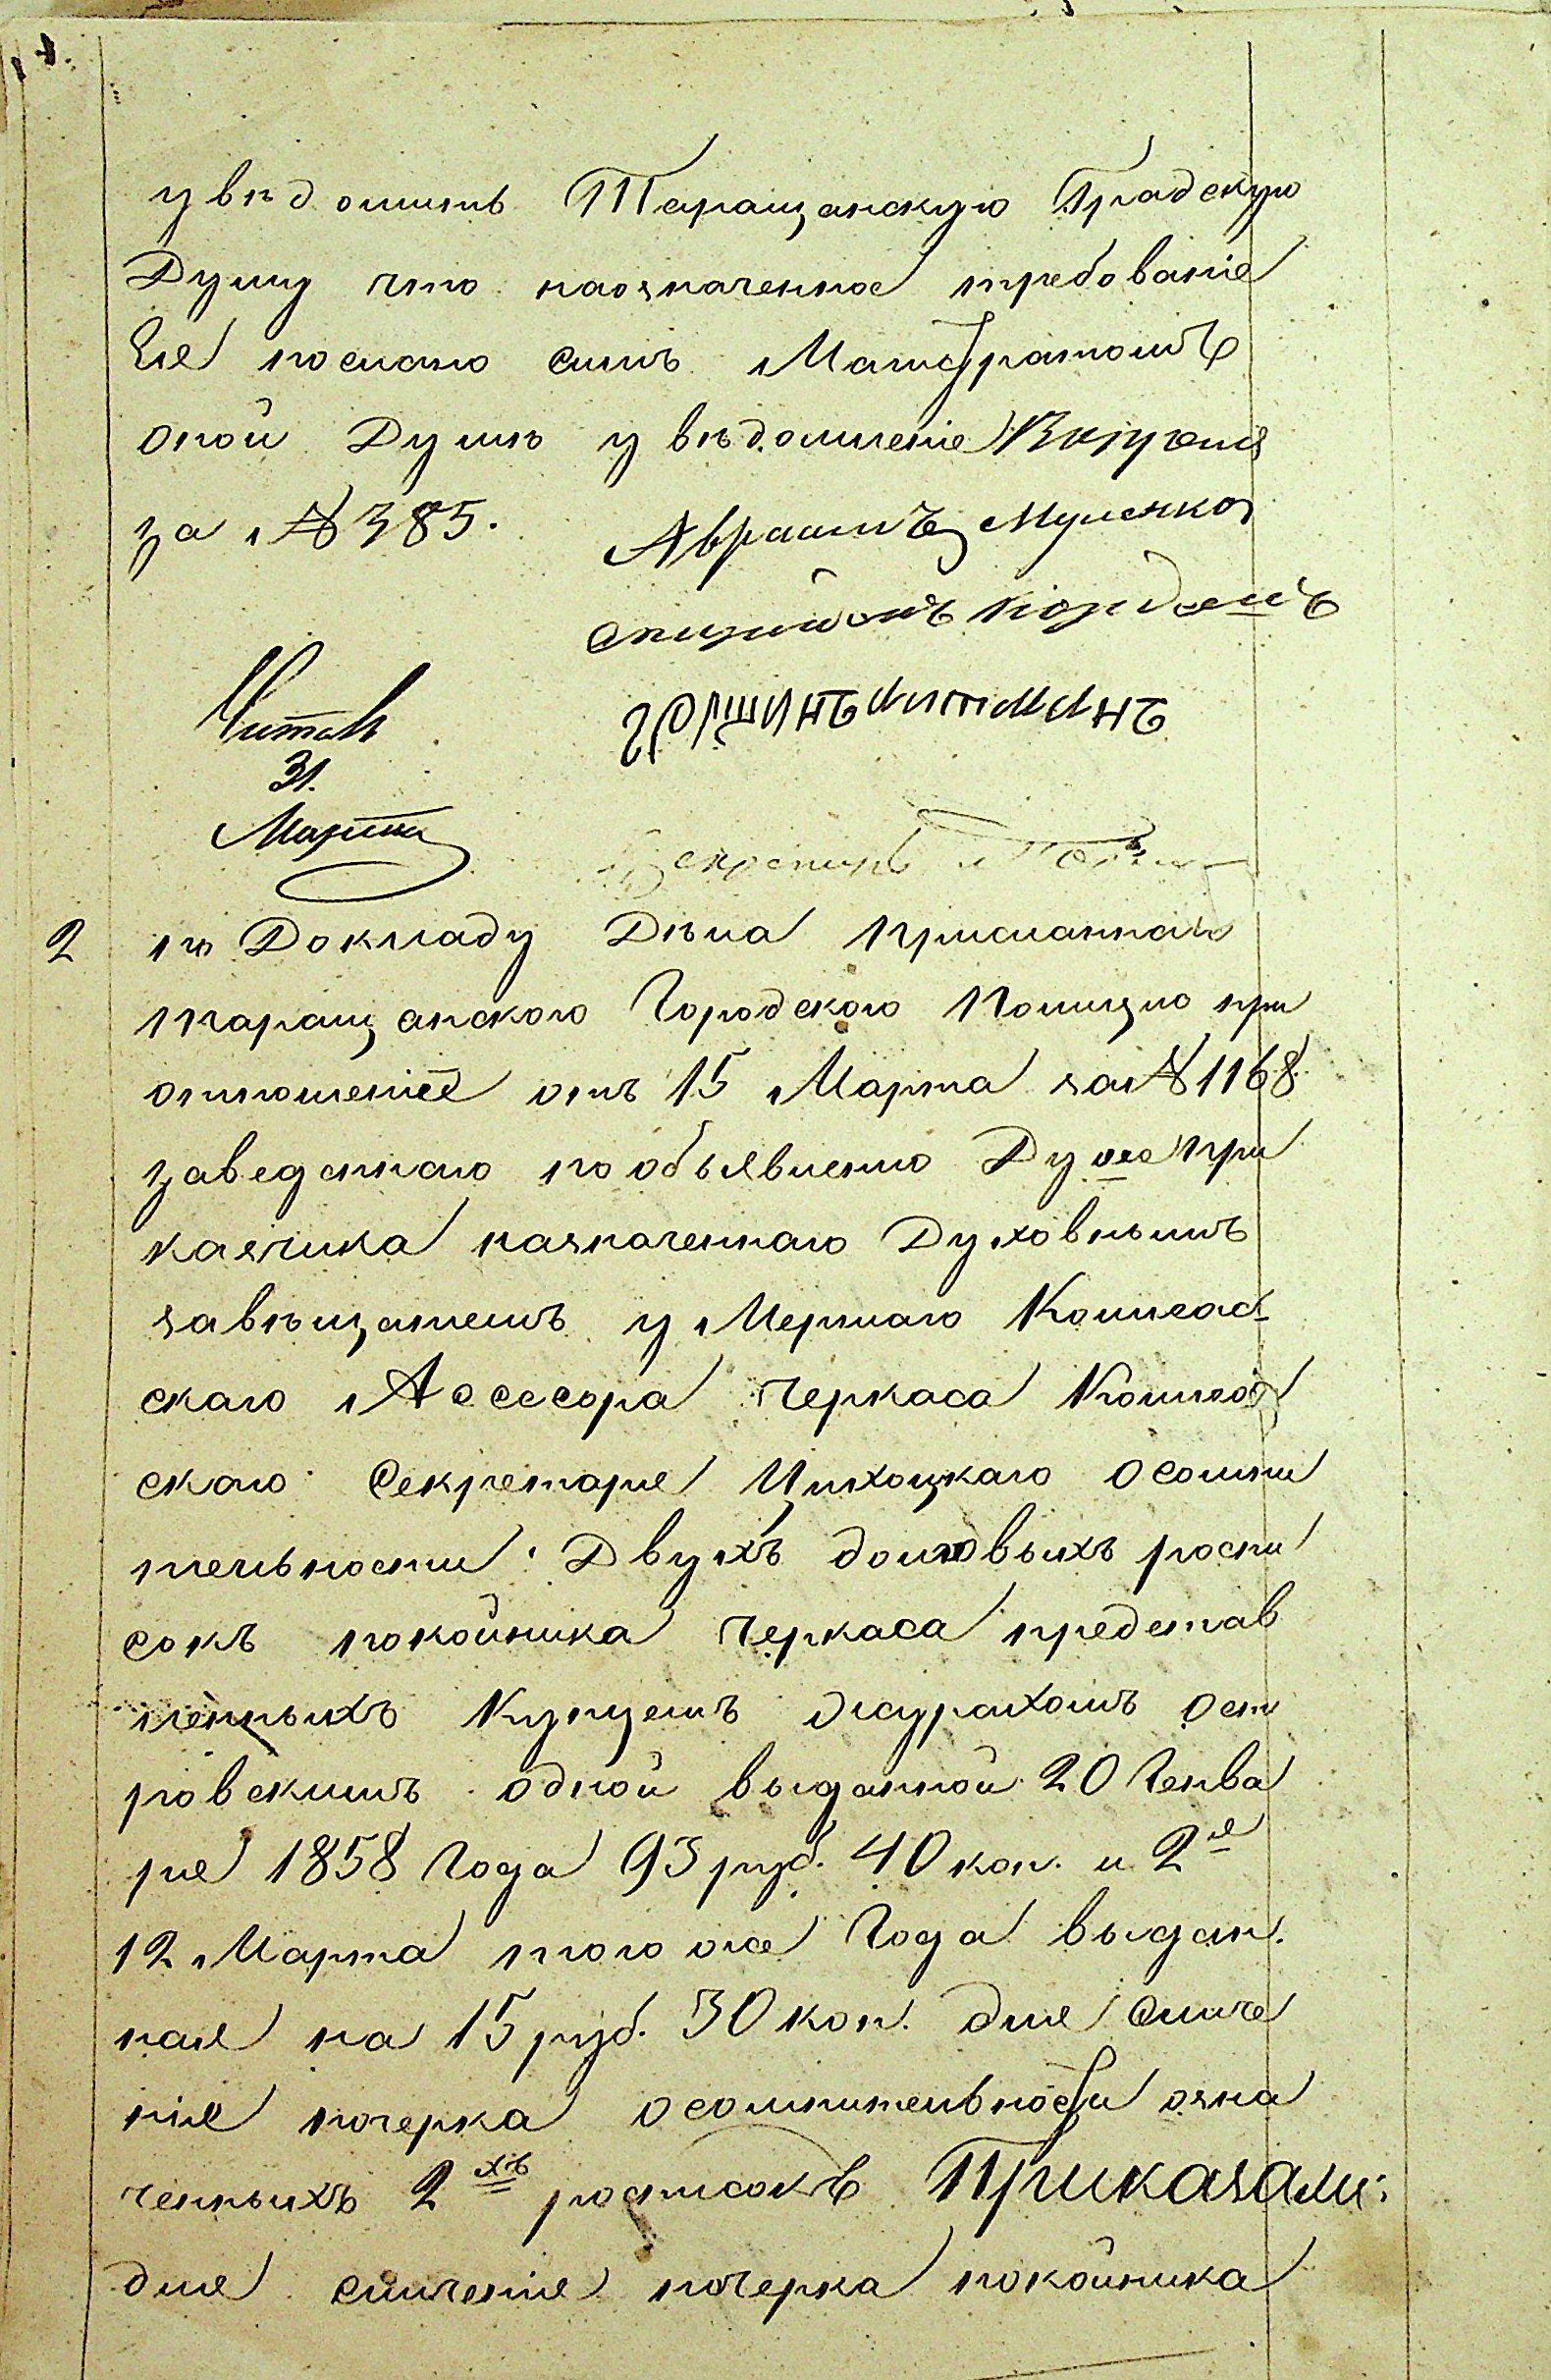 увѣдомить Таращанскую Градскую
Думу что наозначенное требованіе
Ее послано симъ Магистратомъ
оной Думѣ увѣдомленіе
за № 385. Авраамъ
Читалъ
31.
Марта
Секретарь
2 по Докладу Дѣла присланнаго
таращанскою Городскою Полициею при
отношеніе отъ 15 Марта за № 1168
заведеннаго по объявлению Душепри
казчика назначеннаго Духовнымъ
завѣщателемъ умершаго Коллеж-
скаго Ассесора Черкаса Коллеж
скаго Секретаря Цихоцкаго о сомни
тельности Двухъ долговыхъ роспи
сокъ покойника Черкаса представ
ленныхъ Купцемъ Ост
ровскимъ одной выданной 20 Генва
ря 1858 Года 93 руб. 40 коп. и 2я
12 Марта того же Года выдан.
ная на 15 руб. 30 коп. для Сличе
нія почерка о сомнительности озна
ченныхъ 2хъ росписокъ Приказали:
для сличенія почерка покойника